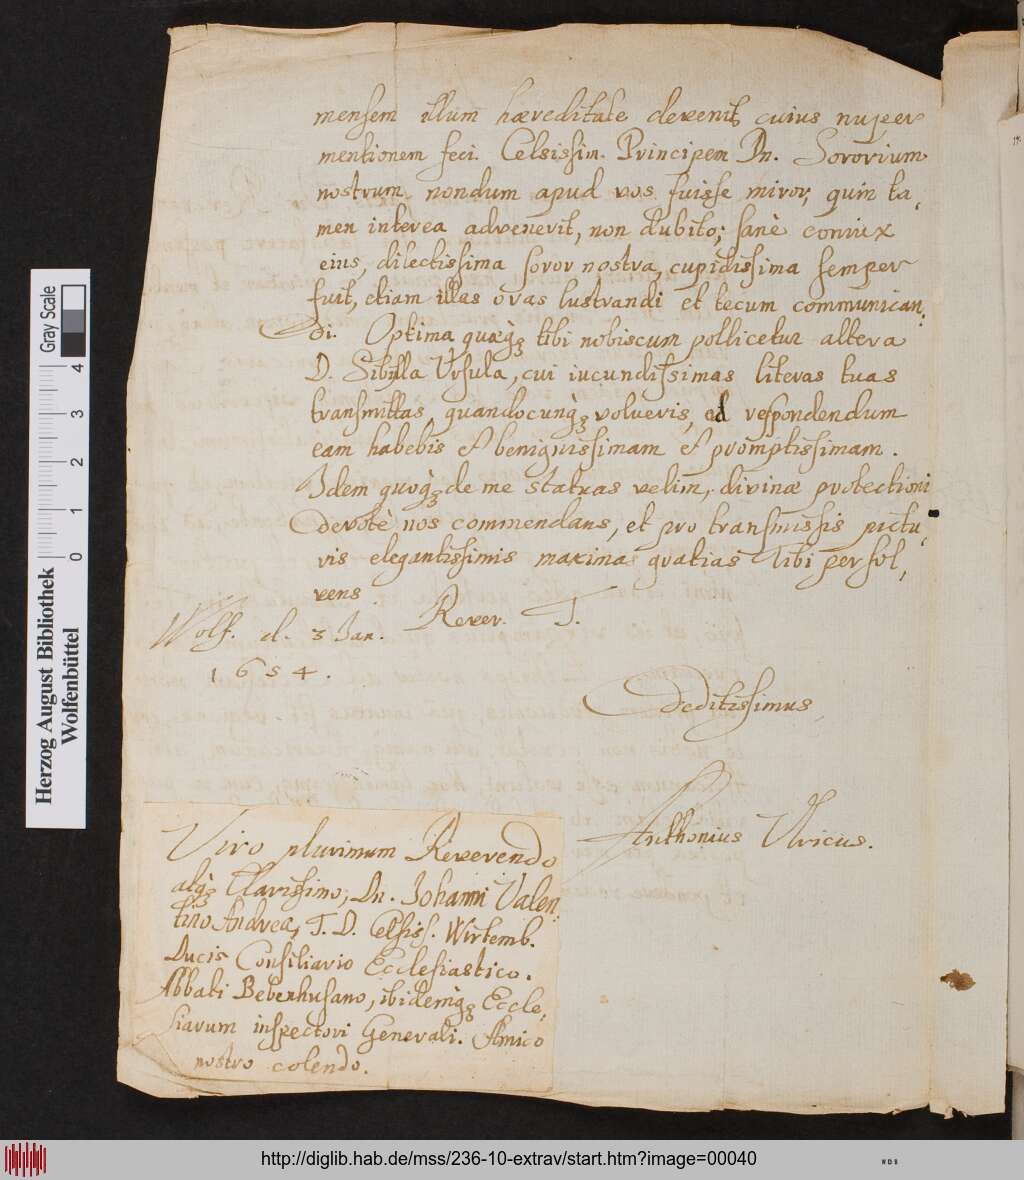 mensem illum hæreditate devenit, cuius nuper
mentionem feci. Celsissim. Principem Dn. Sororium
nostrum nondum apud vos fuisse miror, quin ta,
men interea advenerit, non dubito; sanè coniux
eius, dilectissima soror nostra, cupidissima semper
fuit, etiam illas oras lustrandi et tecum communican,
di. Optima quæq; tibi nobiscum pollicetur altera
D. Sibylla Ursula, cui iucundissimas literas tuas
transmittas, quandocunq; volueris, ad respondendum
eam habebis et benignissimam et promptissimam.
Idem quoq; de me statuas velim, divinæ protectioni
devotè nos commendans, et pro transmissis pictu,
ris elegantissimis maximas gratias Tibi persol,
vens.
Rever. T.
Wolf. d. 3 Jan.
1654.
Deditissimus
Anthonius Ulricus.
Viro plurimum Reverendo
atq; Clarissimo, Dn. Johanni Valen,
tino Andreæ, T. D. Celsiss. Wirtemb.
Ducis Consiliario Ecclesiastico.
Abbati Bebenhusano, ibidemq; Eccle,
siarum inspectori Generali. Amico
nostro colendo.
Herzog August Bibliothek
Wolfenbüttel
Gray Scale
0 1 2 3 4
http://diglib.hab.de/mss/236-10-extrav/start.htm?image=00040